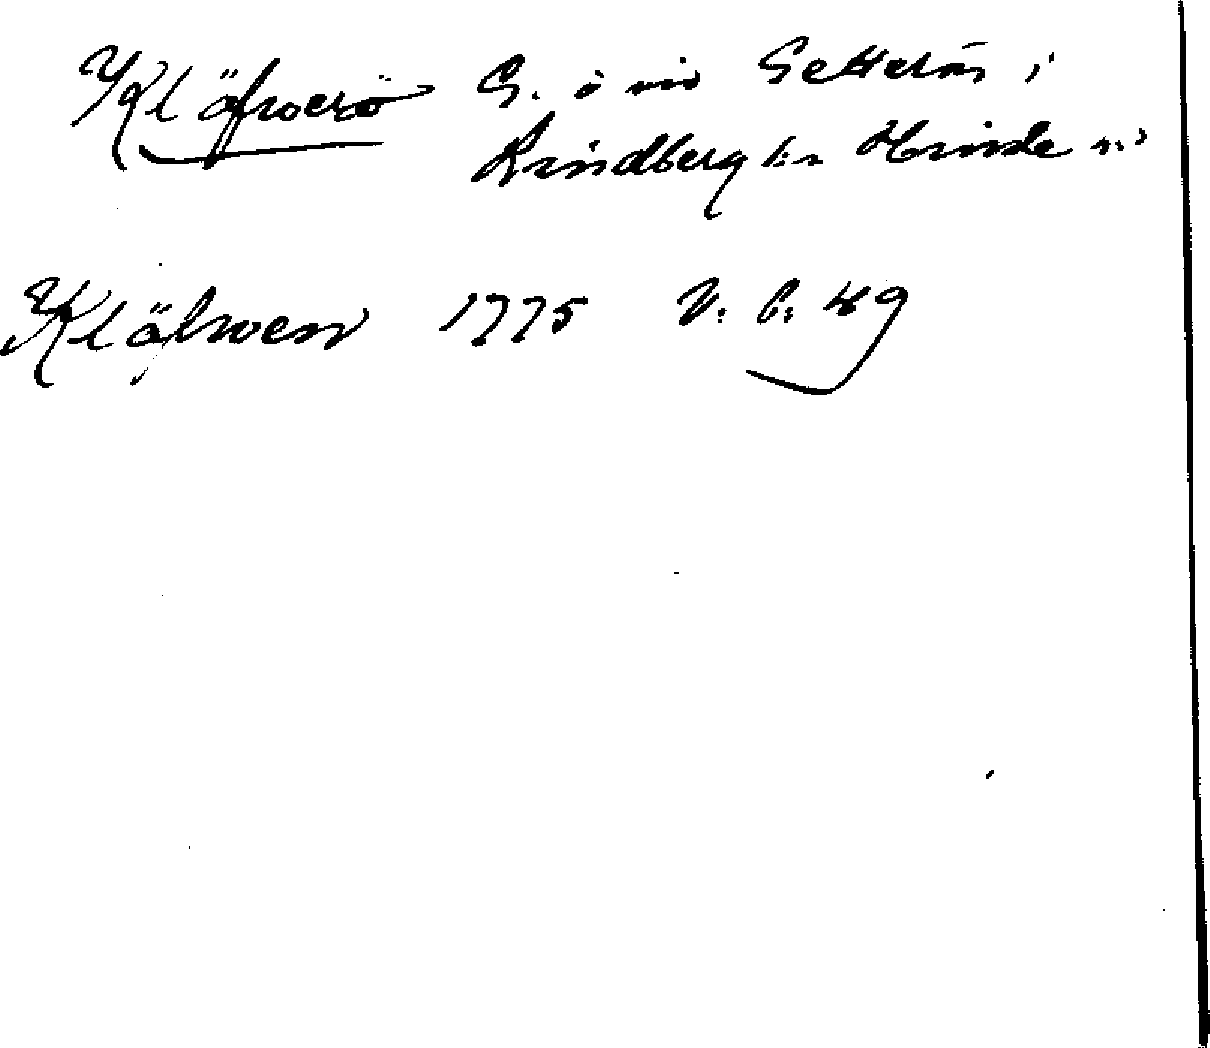 Kläfwerö G. ö vid Getterön i
Lindberg sn Himle hd
Kläfwen 1775 V. b. 49